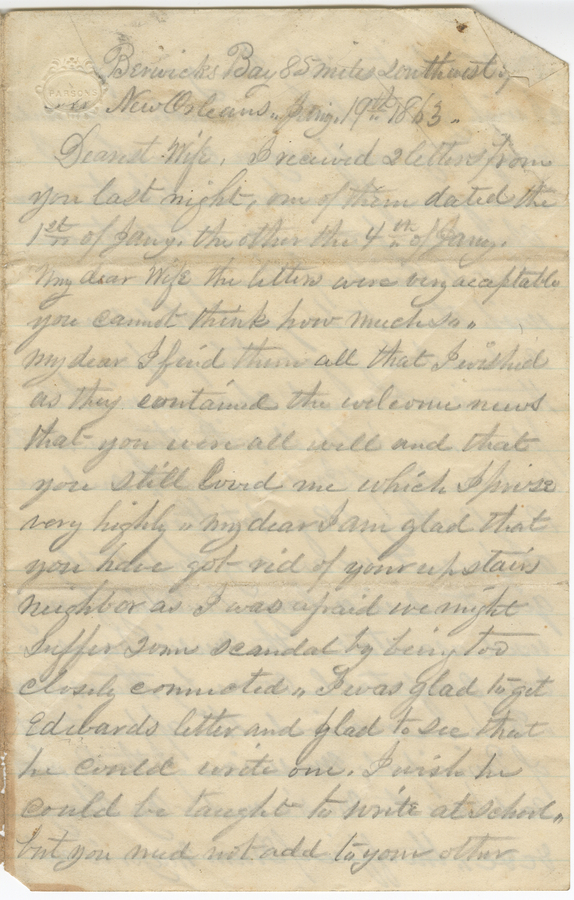 PARSONS
Berwicks Bay 85 miles Southwest of
New Orleans, Jany. 19th 1863.
Dearest Wife, I received 2 letters from
you last night, one of them dated the
1st of Jany. the other the 4th of Jany.
My dear Wife the letters were very acaptable
you cannot think how much so,,
my dear I find them all that I wished
as they contained the welcome news
that you were all well and that
you still loved me which I prise
very highly,, my dear I am glad that
you have got rid of your upstairs
neighbor as I was afraid we might
suffer some scandal by being too
closely connected,, I was glad to get
Edwards letter and glad to see that
he could write one. I wish he
could be taught to write at school,,
but you need not add to your other